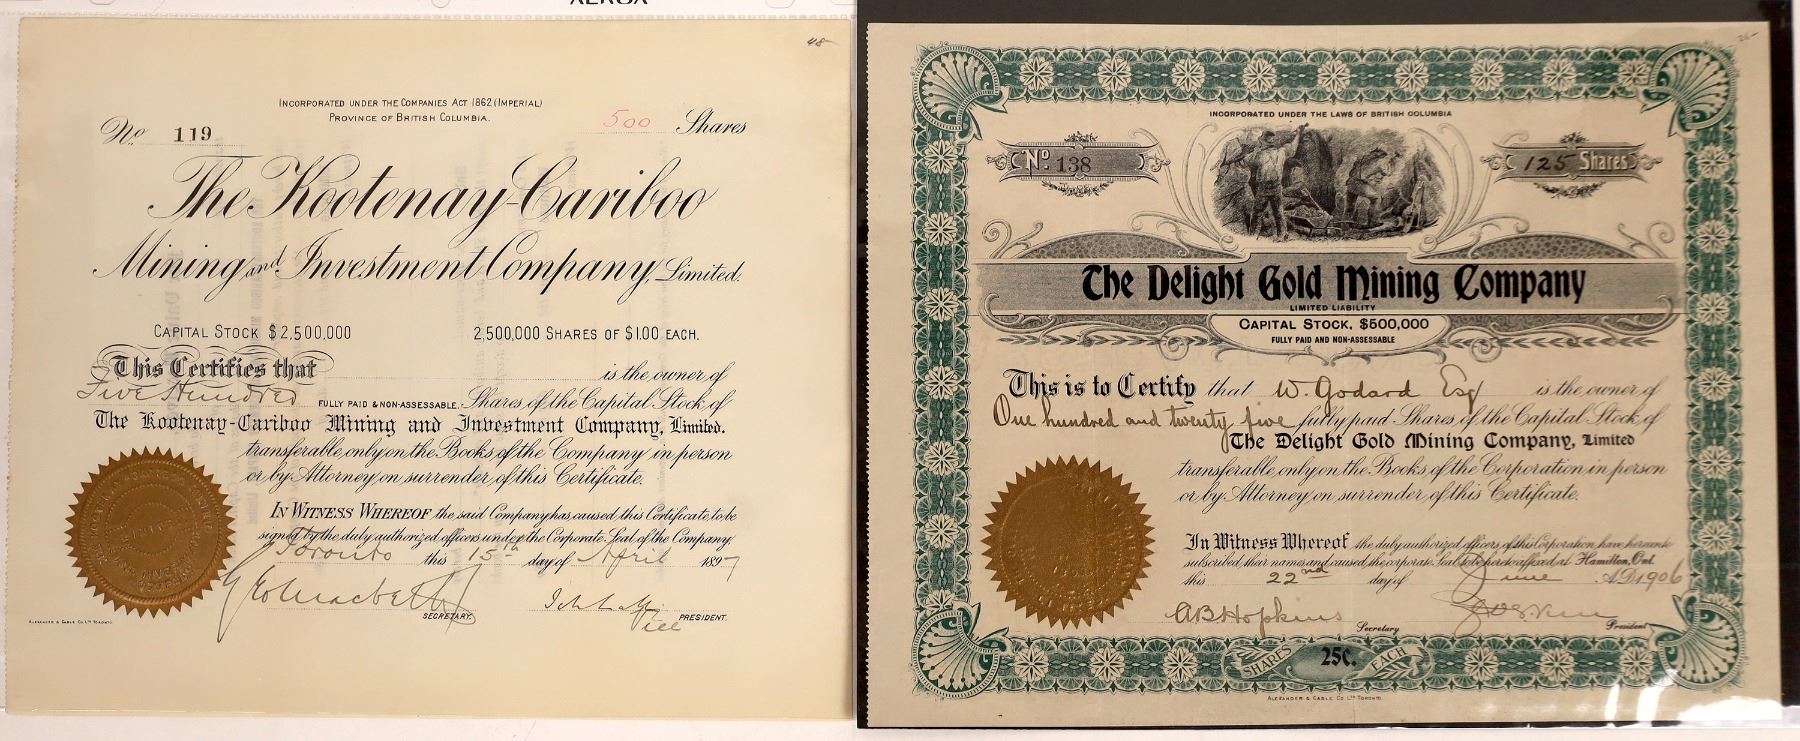 48-
INCORPORATED UNDER THE COMPANIES ACT 1862 (IMPERIAL)
PROVINCE OF BRITISH COLUMBIA.
No. 119
500 Shares
The Kootenay-Cariboo
Mining and Investment Company, Limited.
CAPITAL STOCK $2,500,000 2,500,000 SHARES OF $1.00 EACH.
This Certifies that is the owner of
Five Hundred FULLY PAID & NON-ASSESSABLE. Shares of the Capital Stock of
The Kootenay-Cariboo Mining and Investment Company, Limited.
transferable only on the Books of the Company in person
or by Attorney on surrender of this Certificate.
IN WITNESS WHEREOF the said Company has caused this Certificate to be
signed by the duly authorized officers under the Corporate Seal of the Company,
Toronto this 15th day of April 1897
SECRETARY.
PRESIDENT.
ALEXANDER & CABLE CO LTD TORONTO.
INCORPORATED UNDER THE LAWS OF BRITISH COLUMBIA
No. 138
125 Shares
The Delight Gold Mining Company
LIMITED LIABILITY
CAPITAL STOCK, $500,000
FULLY PAID AND NON-ASSESSABLE
This is to Certify that W. Godard Esq is the owner of
One hundred and twenty five fully paid Shares of the Capital Stock of
The Delight Gold Mining Company, Limited
transferable only on the Books of the Corporation in person
or by Attorney on surrender of this Certificate.
In Witness Whereof the duly authorized officers of this Corporation have hereunto
subscribed their names and caused the corporate Seal to be hereto affixed at Hamilton, Ont.
this 22nd day of June A.D. 1906
A B Hopkins Secretary
President
SHARES 25C. EACH
ALEXANDER & CABLE CO LTD TORONTO.